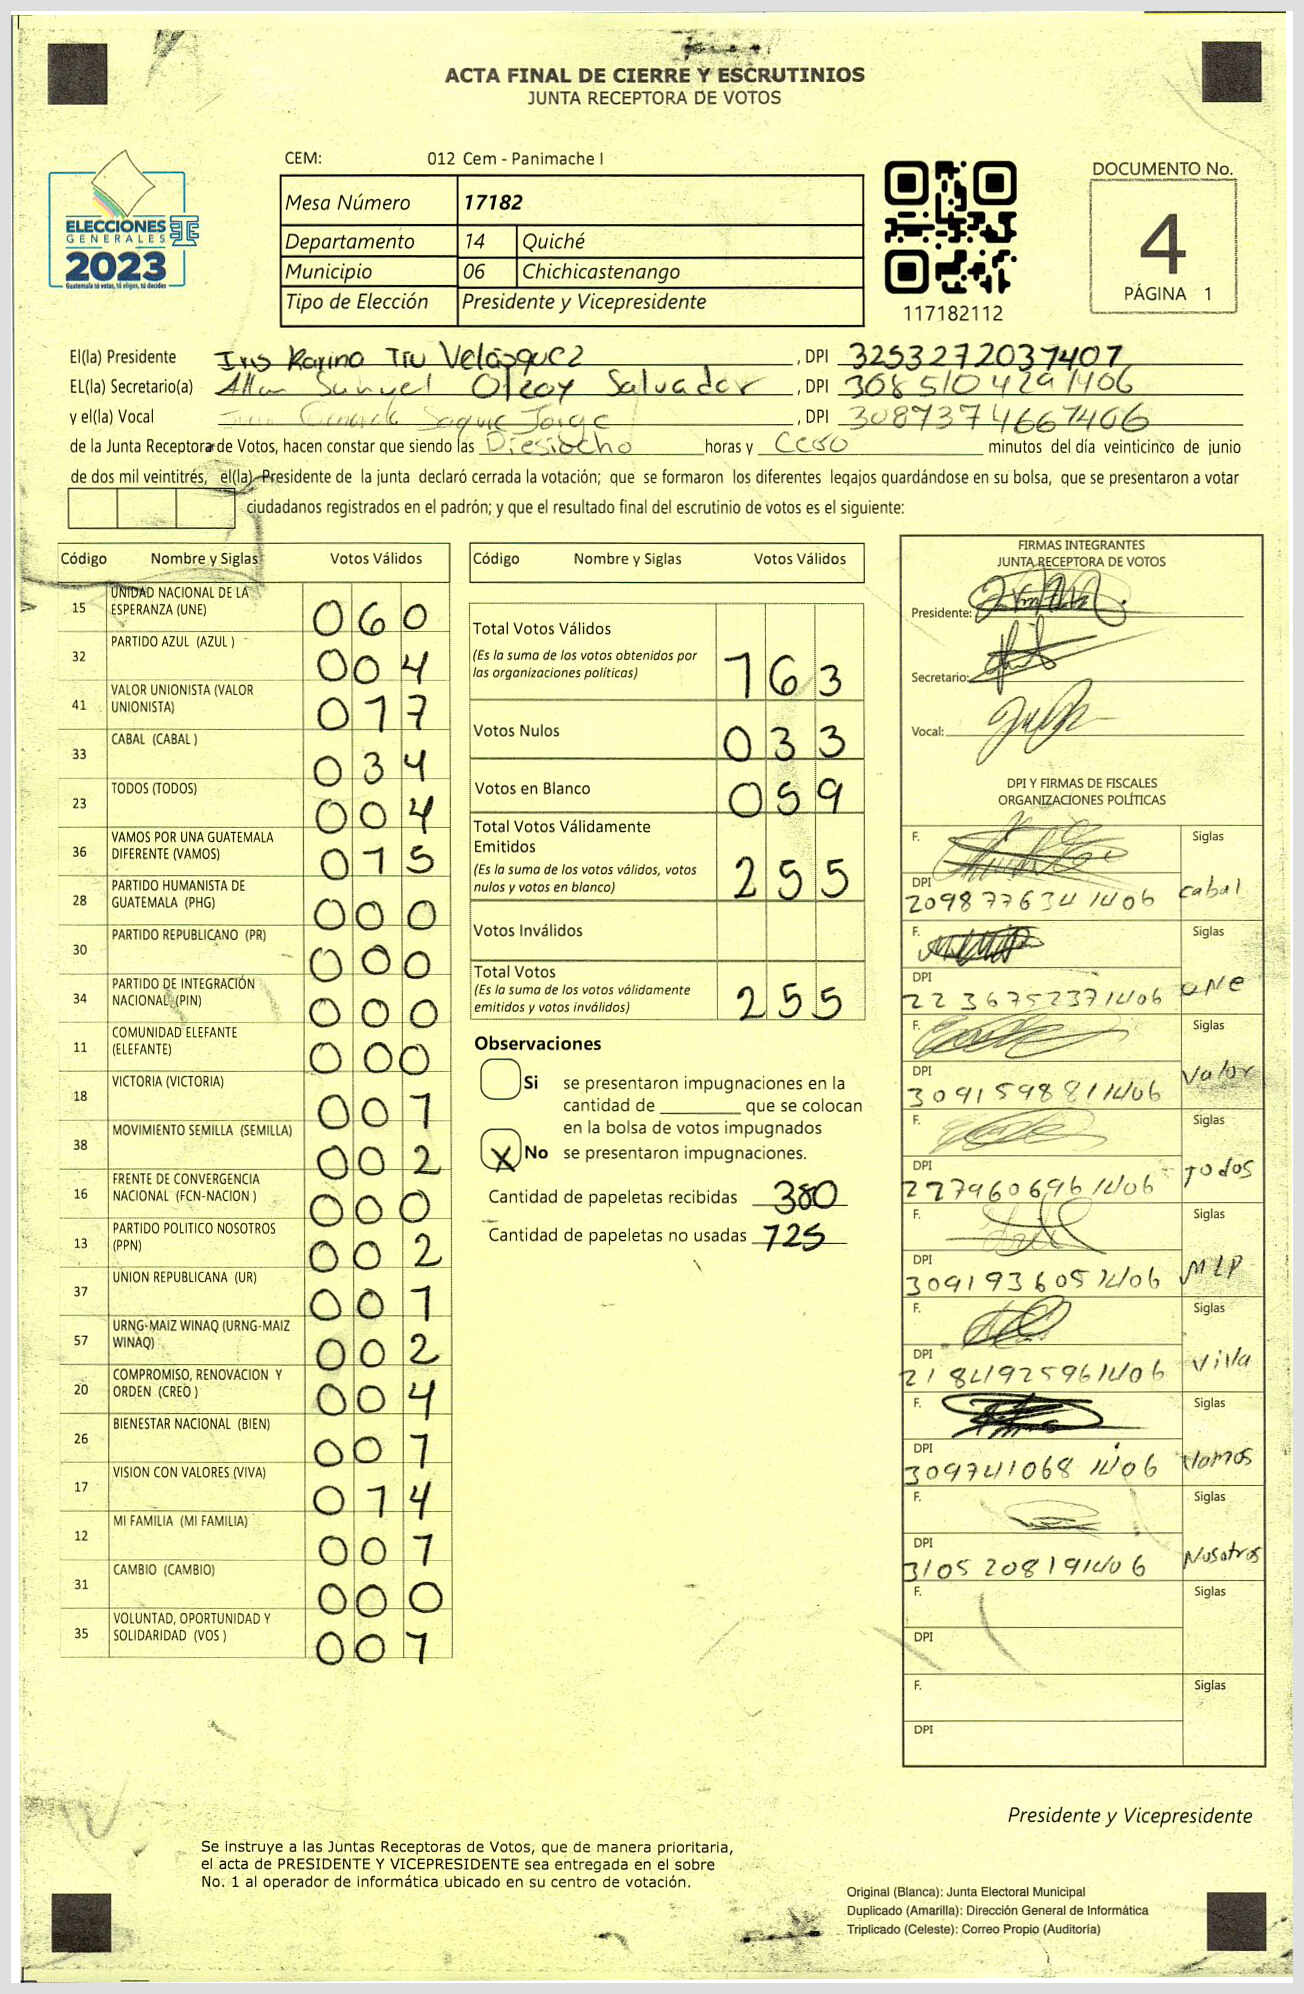 ACTA FINAL DE CIERRE Y ESCRUTINIOS
JUNTA RECEPTORA DE VOTOS
CEM: 012 Cem - Panimache I
ELECCIONES
GENERALES
2023
Guatemala tú votas, tú eliges, tú decides
Mesa Número 17182
Departamento 14 Quiché
Municipio 06 Chichicastenango
Tipo de Elección Presidente y Vicepresidente
117182112
DOCUMENTO No.
4
PÁGINA 1
El(la) Presidente Iris Karina Tiu Velásquez , DPI 3253272031407
EL(la) Secretario(a) Salvador , DPI 3085104291406
y el(la) Vocal Jorge , DPI 3087374661406
de la Junta Receptora de Votos, hacen constar que siendo las Diesiocho horas y Cero minutos del día veinticinco de junio
de dos mil veintitrés, el(la) Presidente de la junta declaró cerrada la votación; que se formaron los diferentes legajos guardándose en su bolsa, que se presentaron a votar
ciudadanos registrados en el padrón; y que el resultado final del escrutinio de votos es el siguiente:
Código Nombre y Siglas Votos Válidos
15 UNIDAD NACIONAL DE LA ESPERANZA (UNE) 060
32 PARTIDO AZUL (AZUL ) 004
41 VALOR UNIONISTA (VALOR UNIONISTA) 017
33 CABAL (CABAL ) 034
23 TODOS (TODOS) 004
36 VAMOS POR UNA GUATEMALA DIFERENTE (VAMOS) 015
28 PARTIDO HUMANISTA DE GUATEMALA (PHG) 000
30 PARTIDO REPUBLICANO (PR) 000
34 PARTIDO DE INTEGRACIÓN NACIONAL (PIN) 000
11 COMUNIDAD ELEFANTE (ELEFANTE) 000
18 VICTORIA (VICTORIA) 001
38 MOVIMIENTO SEMILLA (SEMILLA) 002
16 FRENTE DE CONVERGENCIA NACIONAL (FCN-NACION ) 000
13 PARTIDO POLITICO NOSOTROS (PPN) 002
37 UNION REPUBLICANA (UR) 001
57 URNG-MAIZ WINAQ (URNG-MAIZ WINAQ) 002
20 COMPROMISO, RENOVACION Y ORDEN (CREO ) 004
26 BIENESTAR NACIONAL (BIEN) 001
17 VISION CON VALORES (VIVA) 014
12 MI FAMILIA (MI FAMILIA) 001
31 CAMBIO (CAMBIO) 000
35 VOLUNTAD, OPORTUNIDAD Y SOLIDARIDAD (VOS ) 001
Código Nombre y Siglas Votos Válidos
Total Votos Válidos 163
(Es la suma de los votos obtenidos por
las organizaciones políticas)
Votos Nulos 033
Votos en Blanco 059
Total Votos Válidamente
Emitidos
(Es la suma de los votos válidos, votos
nulos y votos en blanco) 255
Votos Inválidos
Total Votos
(Es la suma de los votos válidamente
emitidos y votos inválidos) 255
Observaciones
Si se presentaron impugnaciones en la
cantidad de ________ que se colocan
en la bolsa de votos impugnados
X No se presentaron impugnaciones.
Cantidad de papeletas recibidas 380
Cantidad de papeletas no usadas 125
FIRMAS INTEGRANTES
JUNTA RECEPTORA DE VOTOS
Presidente:
Secretario:
Vocal:
DPI Y FIRMAS DE FISCALES
ORGANIZACIONES POLÍTICAS
F. Siglas
DPI
2098776341406 cabal
F. Siglas
DPI
2236752371406 UNE
F. Siglas
DPI
3091598811406 Valor
F. Siglas
DPI
2279606961406 Todos
F. Siglas
DPI
3091936051406 MLP
F. Siglas
DPI
2184925961406 ViVa
F. Siglas
DPI
3097410681406 Vamos
F. Siglas
DPI
3105208191406 Nosotros
F. Siglas
DPI
F. Siglas
DPI
Presidente y Vicepresidente
Se instruye a las Juntas Receptoras de Votos, que de manera prioritaria,
el acta de PRESIDENTE Y VICEPRESIDENTE sea entregada en el sobre
No. 1 al operador de informática ubicado en su centro de votación.
Original (Blanca): Junta Electoral Municipal
Duplicado (Amarilla): Dirección General de Informática
Triplicado (Celeste): Correo Propio (Auditoría)